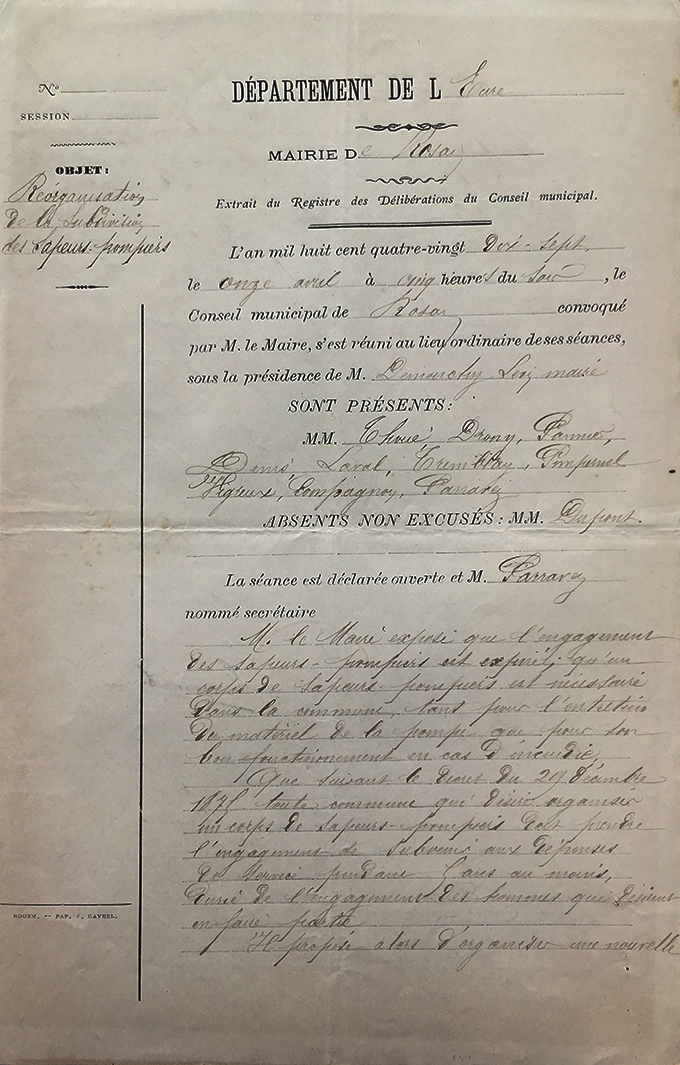 N°
SESSION
OBJET:
Réorganisation
de la subdivision
des sapeurs-pompiers
DÉPARTEMENT DE L'Eure
MAIRIE De Rosay
Extrait du Registre des Délibérations du Conseil municipal.
L'an mil huit cent quatre-vingt Dix-sept
le onze avril à cinq heures du soir, le
Conseil municipal de Rosay convoqué
par M. le Maire, s'est réuni au lieu ordinaire de ses séances,
sous la présidence de M. Demouchy maire
SONT PRÉSENTS:
MM. Thoué, Drony, Pannier,
Denis, Laval, Tremblay, Pimpernel
Vigreux, Compagnon, Parravey
ABSENTS NON EXCUSÉS: MM. Dupont.
La séance est déclarée ouverte et M. Parravey
nommé secrétaire
M. le Maire expose que l'engagement
des sapeurs-pompiers est expiré; qu'un
corps de sapeurs-pompiers est nécessaire
dans la commune, tant pour l'entretien
du matériel de la pompe que pour son
bon fonctionnement en cas d'incendie,
Que suivant le décret du 29 décembre
1875 toute commune qui désire organiser
un corps de sapeurs-pompiers doit prendre
l'engagement de subvenir aux dépenses
du service pendant 5 ans au moins,
durée de l'engagement des hommes qui désirent
en faire partie
Il propose alors d'organiser une nouvelle
ROUEN. — PAP. J. GAVREL.